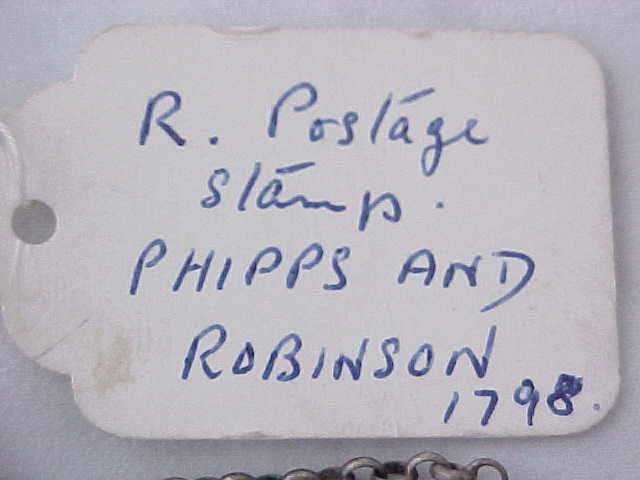 R. Postage
stamp.
PHIPPS AND
ROBINSON
1798.